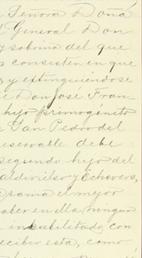 Señora Doña
General Don
y sobrina del que
consisten en que
y extinguiéndose
Don José Fran
hijo primogénito
San Pedro del
reservable debe
segundo hijo del
Valdivieles y Echevers,
Drama el mejor
haber en ella, aunque
inhabilitado, con
recibir esta, como